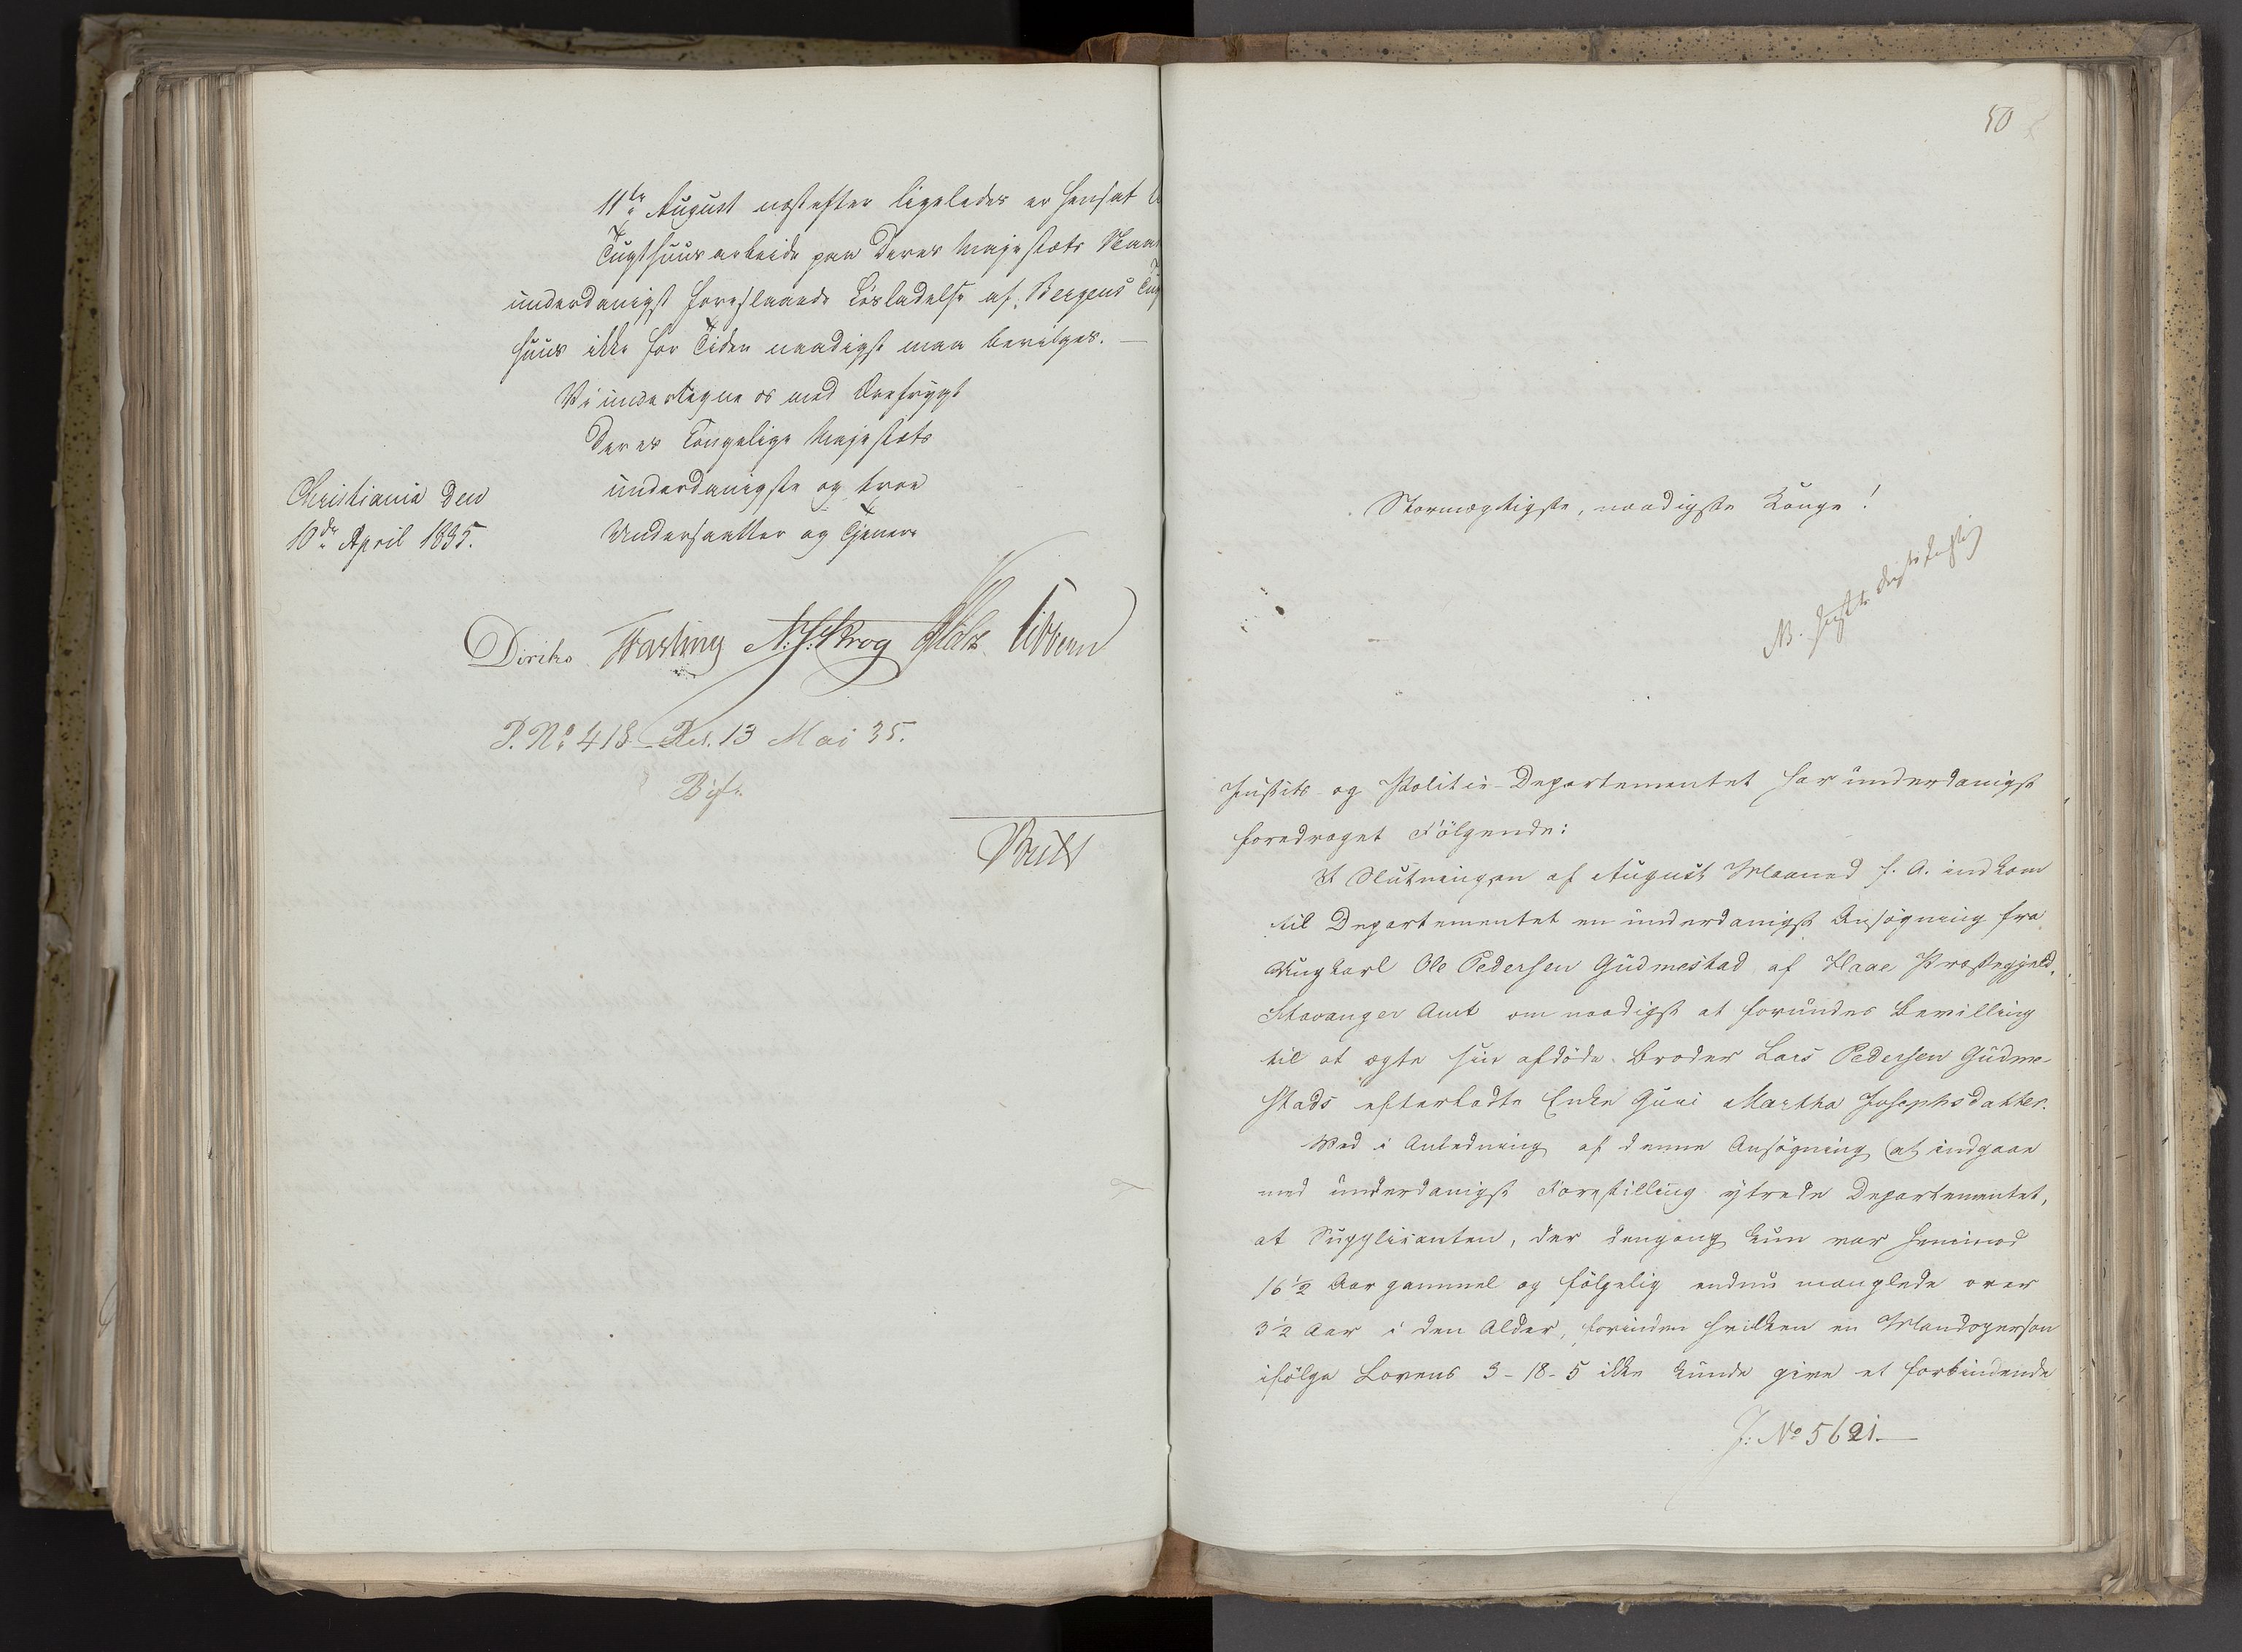 11te August næstefter ligeledes er hensat
Tugthuusarbeide paa Deres Majestæts Naa
underdanigst foreslaaede Løsladelse af Bergens Tug
huus ikke for Tiden naadigst maa bevilges. —
Vi undertegne os med Ærefrygt
Deres Kongelige Majestæts
underdanigste og troe
Undersaatter og Tjenere
Christiania den
10de April 1835.
Diriks Fasting N. J. Krog Holst Vibbern
P. No 418 Res. 13 Mai 35.
Bif.
50
Stormægtigste, naadigste Konge!
NB.
Justits- og Politie-Departementet har underdanigst
foredraget Følgende:
I Slutningen af August Maaned f. A. indkom
til Departementet en underdanigst Ansøgning fra
Ungkarl Ole Pedersen Gudmestad af Haae Præstegjeld,
Stavanger Amt om naadigst at forundes Bevilling
til at ægte sin afdöde Broder Lars Pedersen Gudme-
stads efterladte Enke Guri Martha Josephsdatter.
Ved i Anledning af denne Ansøgning at indgaae
med underdanigst Forestilling yttrede Departementet,
at Supplicanten, der dengang kun var henimod
16½ Aar gammel og fölgelig endnu manglede over
3½ Aar i den Alder, forinden hvilken en Mandsperson
ifölge Lovens 3-18-5 ikke kunde give et forbindende
J: No 5621.